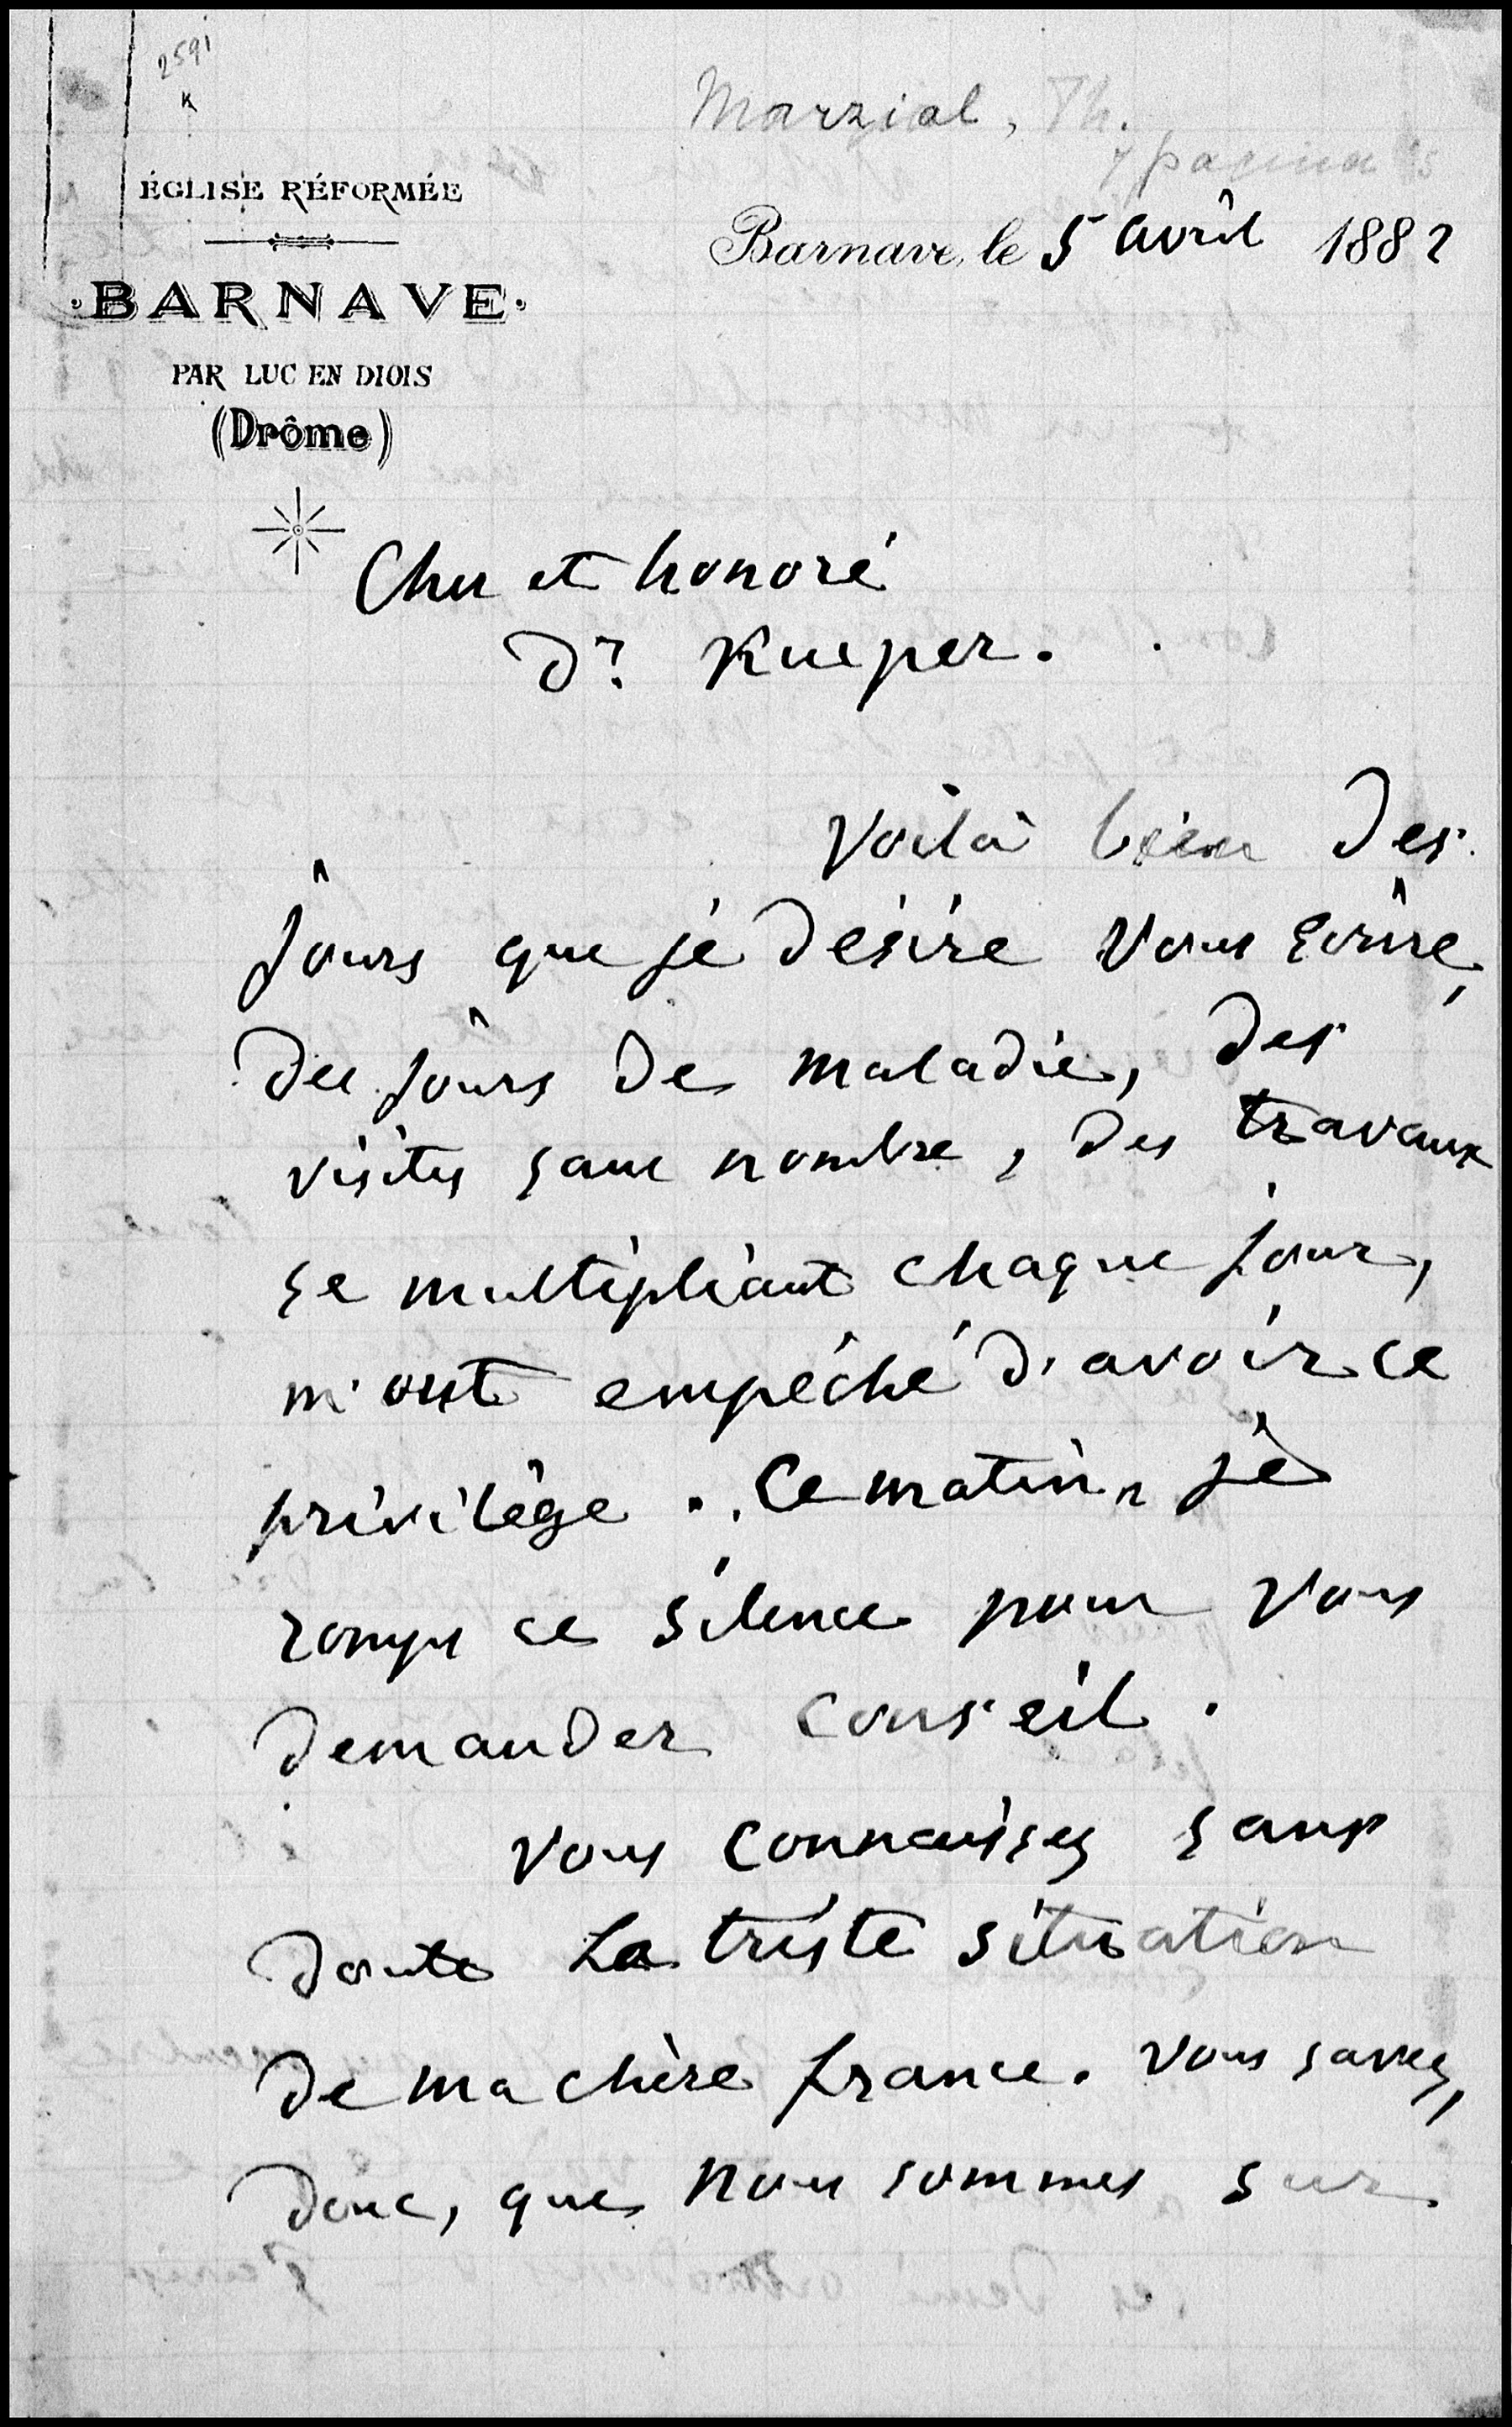 2591
K
Marzial, Th.
7 pagina's
ÉGLISE RÉFORMÉE
BARNAVE
PAR LUC EN DIOIS
(Drôme)
Barnave, le 5 avril 1882
Cher et honoré
Dr. Kuyper.
Voilà bien des
jours que je désire vous écrire,
des jours de maladie, des
visites sans nombre, des travaux
se multipliant chaque jour,
m'ont empêché d'avoir ce
privilège. Ce matin, je
romps ce silence pour vous
demander conseil.
Vous connaissez sans
doute la triste situation
de ma chère france. Vous savez,
donc, que nous sommes sur